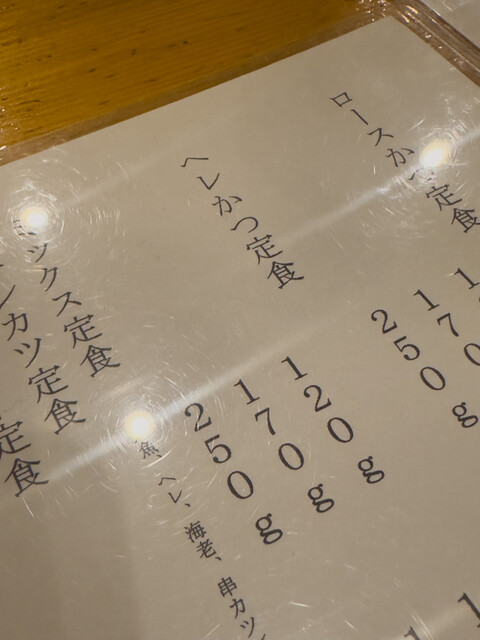 ロースかつ定食
170
250g
ヘレかつ定食
120g
170g
250g
ックス定食
魚、ヘレ、海老、串カツ
カツ定食
定食